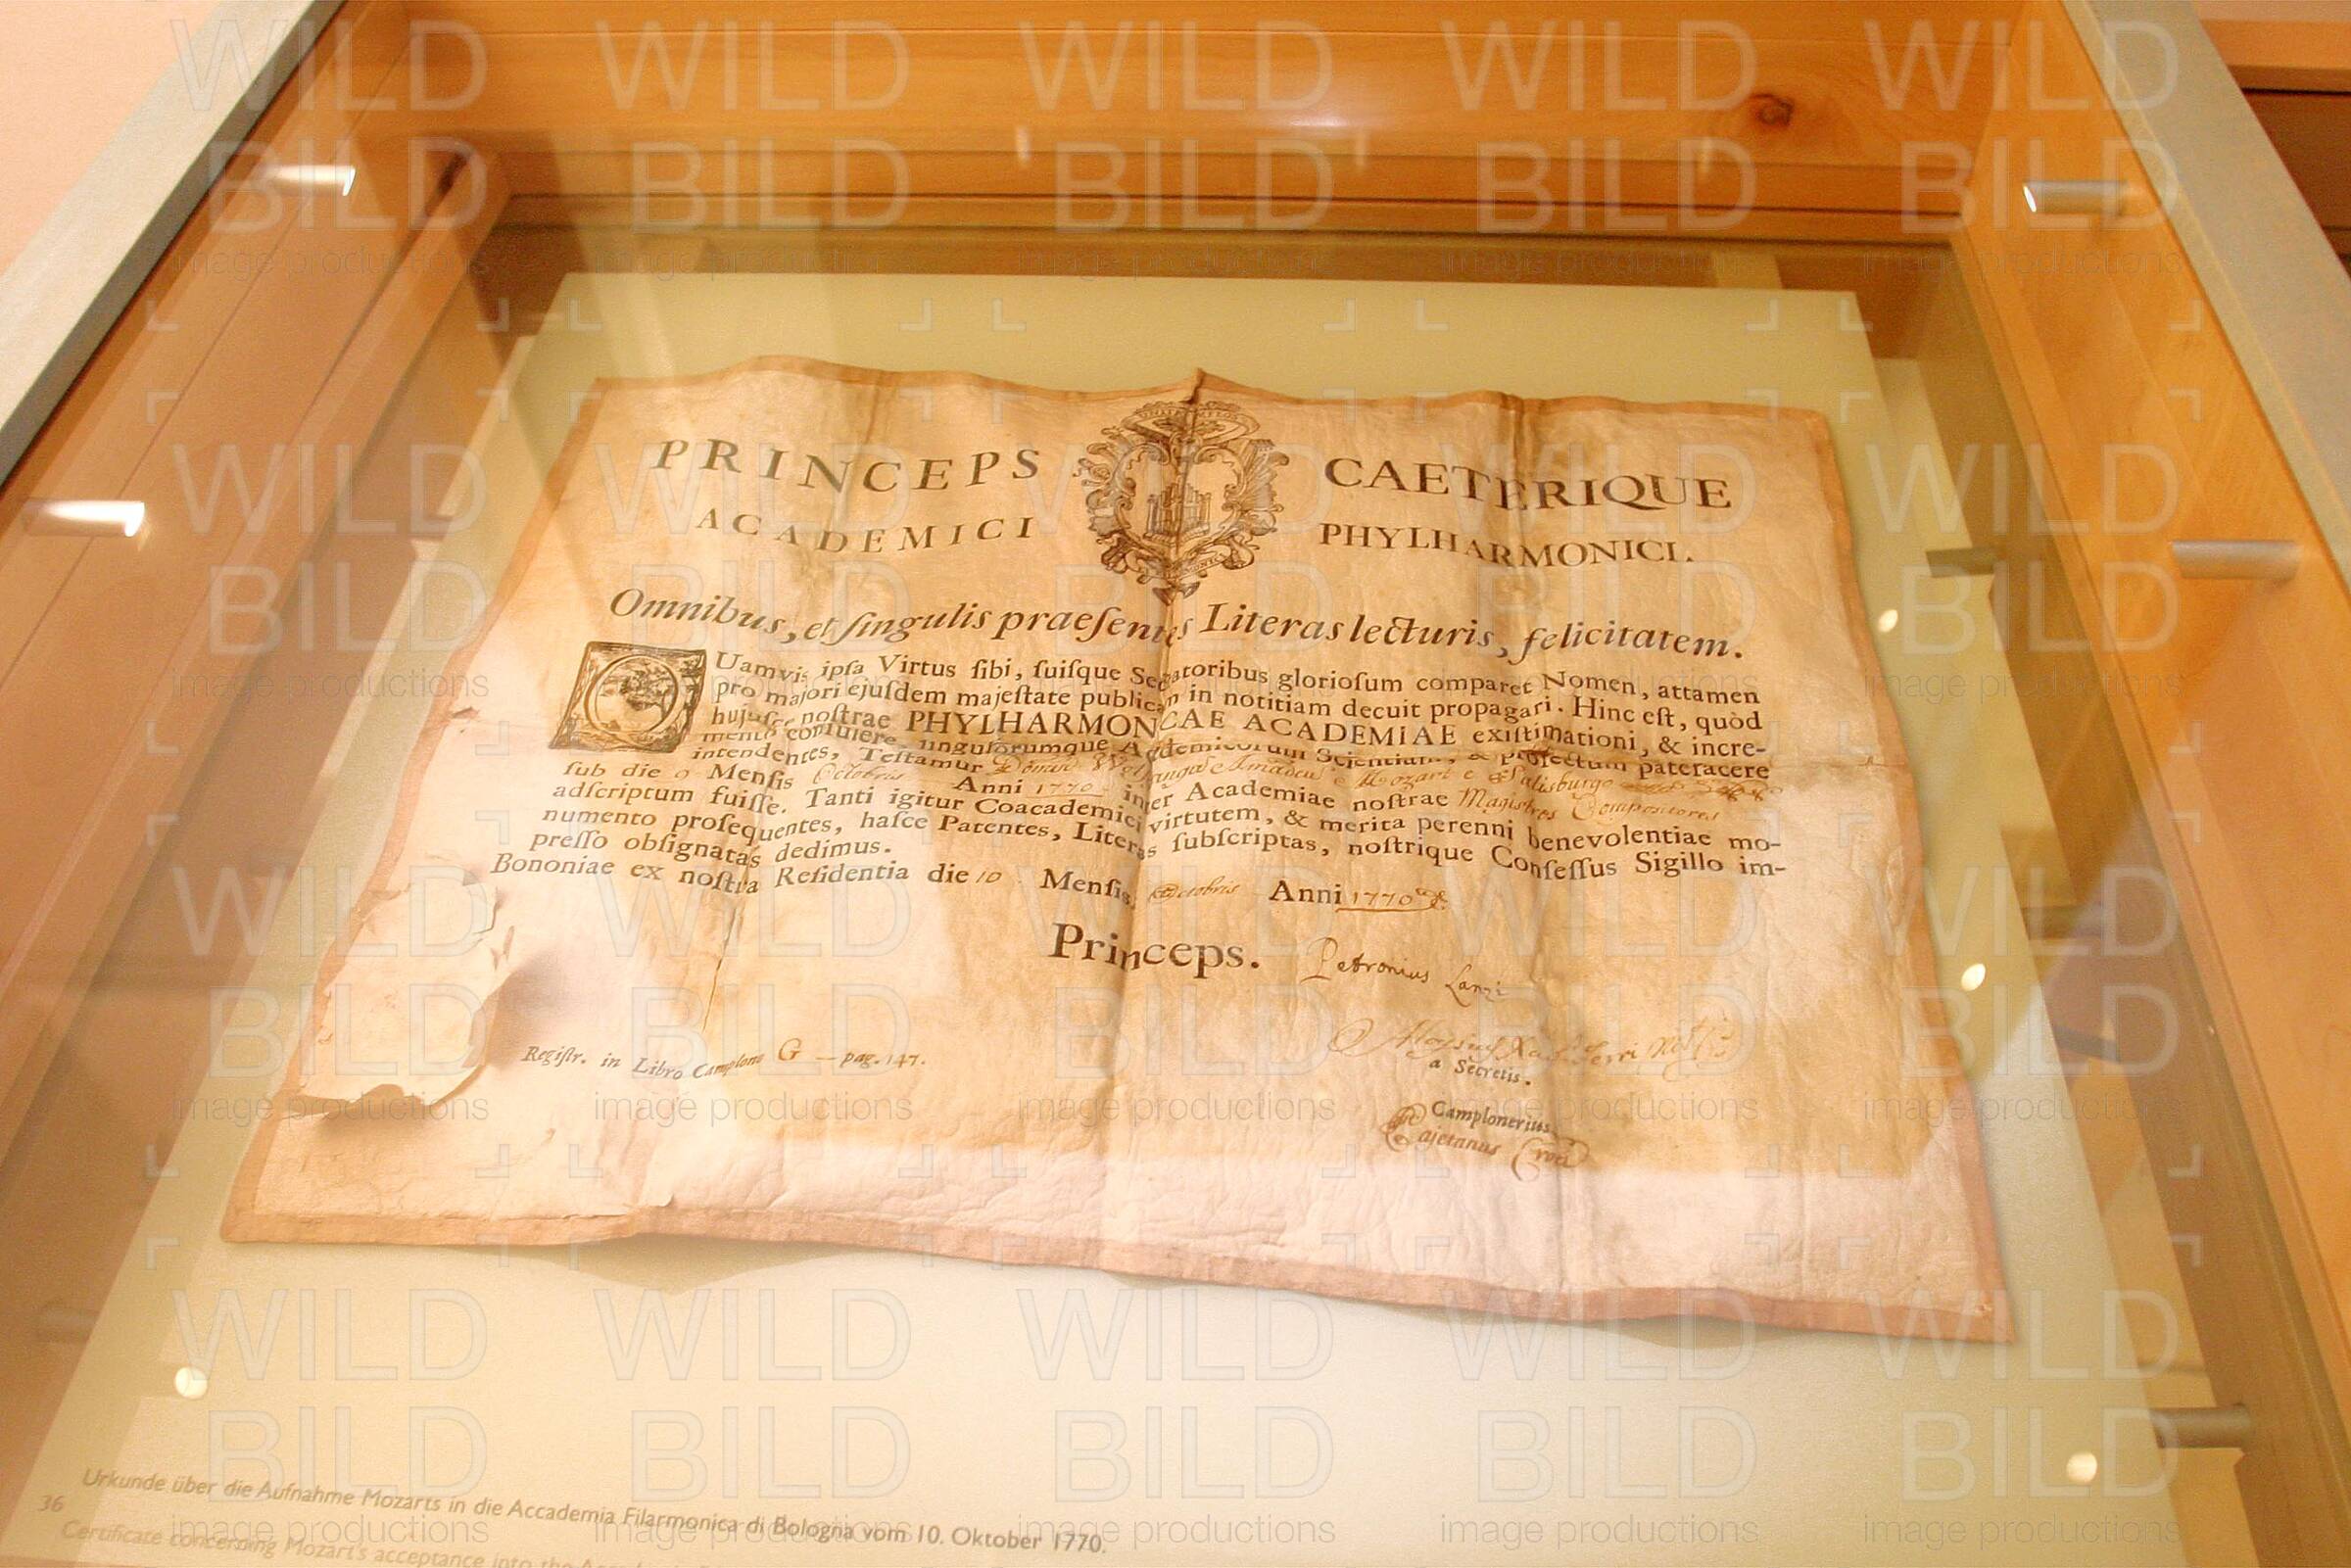 PRINCEPS CAETERIQUE
ACADEMICI PHYLHARMONICI.
Omnibus, et ſingulis praeſentes Literas lecturis, felicitatem.
QUamvis ipſa Virtus ſibi, ſuiſque Sectatoribus glorioſum comparet Nomen, attamen
pro majori ejuſdem majeſtate publicam in notitiam decuit propagari. Hinc eſt, quòd
hujuſce noſtrae PHYLHARMONICAE ACADEMIAE exiſtimationi, & incre-
mento conſulere, ſingulorumque Academicorum Scientiam, & profectum patefacere
intendentes, Teſtamur Domin Wolfgangum Amadeum Mozart e Salisburgo
ſub die 9 Menſis Octobris Anni 1770 inter Academiae noſtrae Magistros Compositores
adſcriptum fuiſſe. Tanti igitur Coacademici virtutem, & merita perenni benevolentiae mo-
numento proſequentes, haſce Patentes, Literas ſubſcriptas, noſtrique Conſeſſus Sigillo im-
preſſo obſignatas dedimus.
Bononiae ex noſtra Reſidentia die 10 Menſis Octobris Anni 1770
Princeps. Petronius Lanzi
a Secretis.
Regiſtr. in Libro Camplone G — pag. 147.
Camplonerius
Cajetanus Croci
36 Urkunde über die Aufnahme Mozarts in die Accademia Filarmonica di Bologna vom 10. Oktober 1770.
Certificate concerning Mozart's acceptance into the
WILD
BILD
image productions